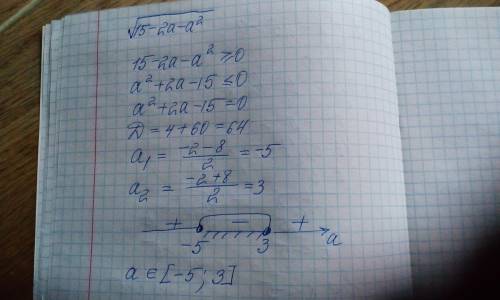 √15-2a-a²
15-2a-a²≥0
a²+2a-15≤0
a²+2a-15=0
D=4+60=64
a₁ = (-2-8)/2 = -5
a₂ = (-2+8)/2 = 3
+ - +
-5 3 a
a∈[-5; 3]